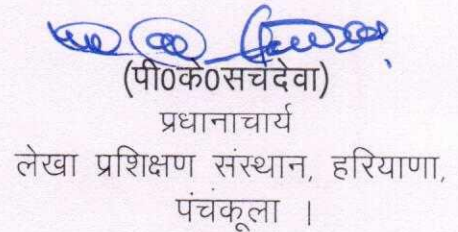 (पी0के0सचदेवा)
प्रधानाचार्य
लेखा प्रशिक्षण संस्थान, हरियाणा,
पंचकूला |